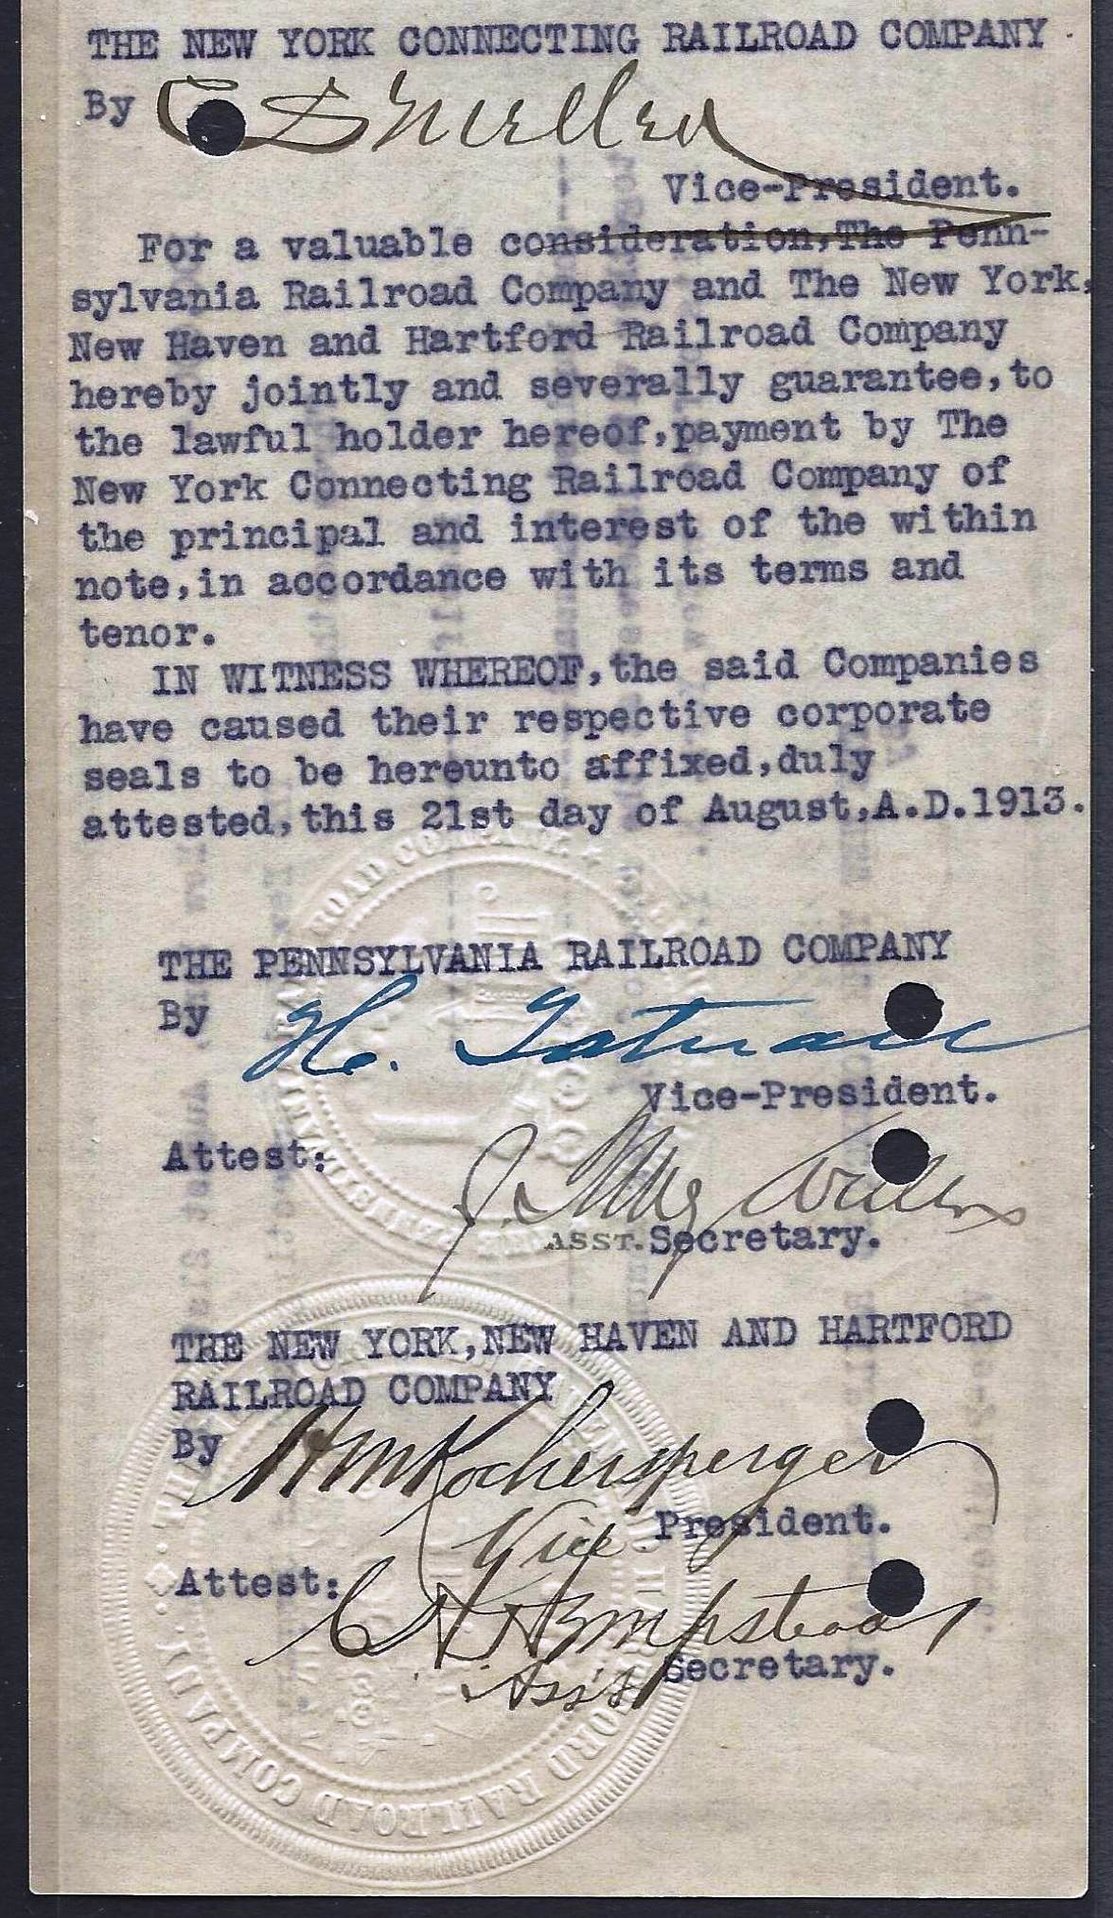 THE NEW YORK CONNECTING RAILROAD COMPANY
By C S Mellen
Vice-President.
For a valuable consideration,The Penn-
sylvania Railroad Company and The New York,
New Haven and Hartford Railroad Company
hereby jointly and severally guarantee,to
the lawful holder hereof,payment by The
New York Connecting Railroad Company of
the principal and interest of the within
note,in accordance with its terms and
tenor.
IN WITNESS WHEREOF,the said Companies
have caused their respective corporate
seals to be hereunto affixed,duly
attested,this 21st day of August,A.D.1913.
THE PENNSYLVANIA RAILROAD COMPANY
By H. Tatnall
Vice-President.
Attest:
J.
ASST. Secretary.
THE NEW YORK,NEW HAVEN AND HARTFORD
RAILROAD COMPANY
By H M Kochersperger
Vice President.
Attest:
Hempstead
Ass't Secretary.
RAILROAD COMPANY